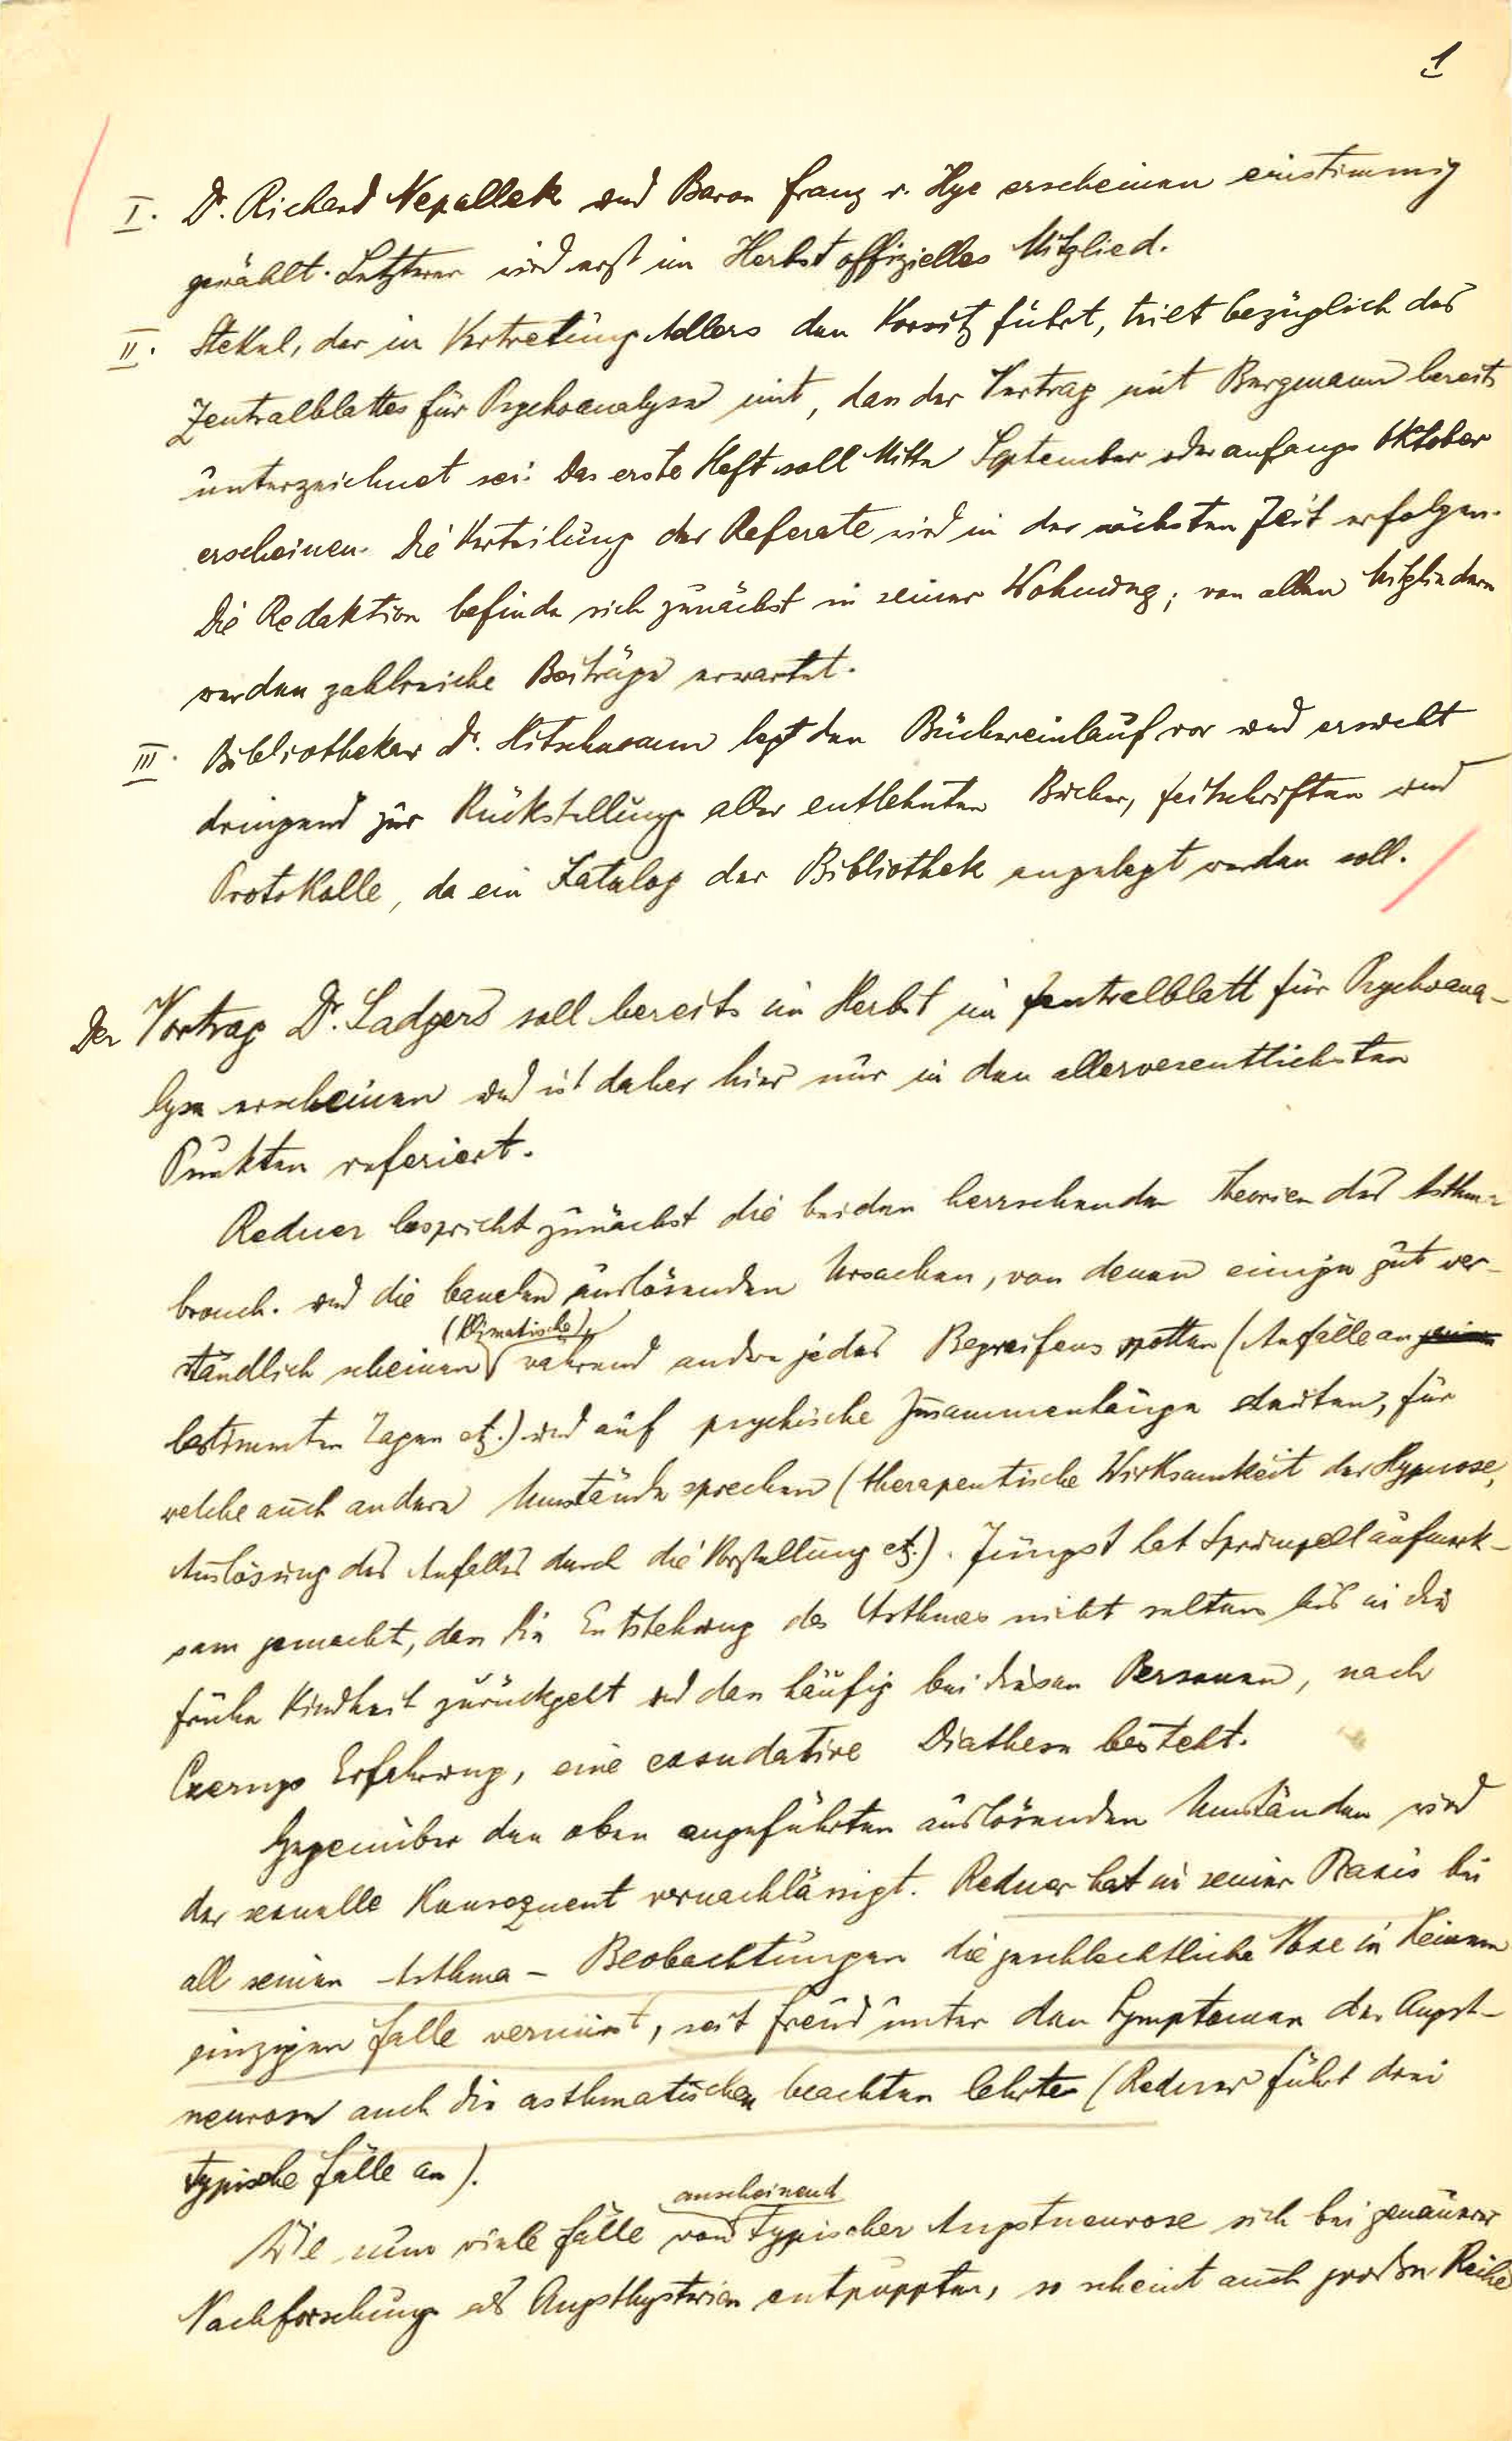 1
I. Dr. Richard Nepallek und Baron Franz v. Hye erscheinen einstimmig
gewählt. Letzterer wird erst im Herbst offizielles Mitglied.
II. Stekel, der in Vertretung Adlers den Vorsitz führt, teilt bezüglich des
Zentralblattes für Psychoanalyse mit, dass der Vertrag mit Bergmann bereits
unterzeichnet sei. Das erste Heft soll Mitte September oder anfangs Oktober
erscheinen. Die Verteilung der Referate wird in der nächsten Zeit erfolgen.
Die Redaktion befinde sich zunächst in seiner Wohnung; von allen Mitgliedern
werden zahlreiche Beiträge erwartet.
III. Bibliothekar Dr. Hitschmann legt den Büchereinlauf vor und ersucht
dringend zur Rückstellung aller entlehnten Bücher, Zeitschriften und
Protokolle, da ein Katalog der Bibliothek angelegt werden soll.
Der Vortrag Dr. Sadgers soll bereits im Herbst im Zentralblatt für Psychoana-
lyse erscheinen und ist daher hier nur in den allerwesentlichsten
Punkten referiert.
Redner bespricht zunächst die beiden herrschenden Theorien des Asthma
bronch. und die banalen auslösenden Ursachen, von denen einige gut ver-
(klimatische)
ständlich scheinen während andre jedes Begreifens spotten (Anfälle an
bestimmten Tagen etz.) und auf psychische Zusammenhänge deuten, für
welche auch andere Umstände sprechen (therapeutische Wirksamkeit der Hypnose,
Auslösung des Anfalles durch die Vorstellung etz.). Jüngst hat Strümpell aufmerk-
sam gemacht, dass die Entstehung des Asthmas nicht selten bis in die
frühe Kindheit zurückgeht und dass häufig bei diesen Personen, nach
Czernys Erfahrung, eine exsudative Diathese besteht.
Gegenüber den oben angeführten auslösenden Umständen wird
der sexuelle konsequent vernachlässigt. Redner hat in seiner Praxis bei
all seinen Asthma- Beobachtungen die geschlechtliche Note in keinem
einzigen Falle vermisst, seit Freud unter den Symptomen der Angst-
neurose auch die asthmatischen beachten lehrte (Redner führt drei
typische Fälle an).
anscheinend
Wie nun viele Fälle von typischer Angstneurose sich bei genauerer
Nachforschung als Angsthysterien entpuppten, so scheint auch Reihe